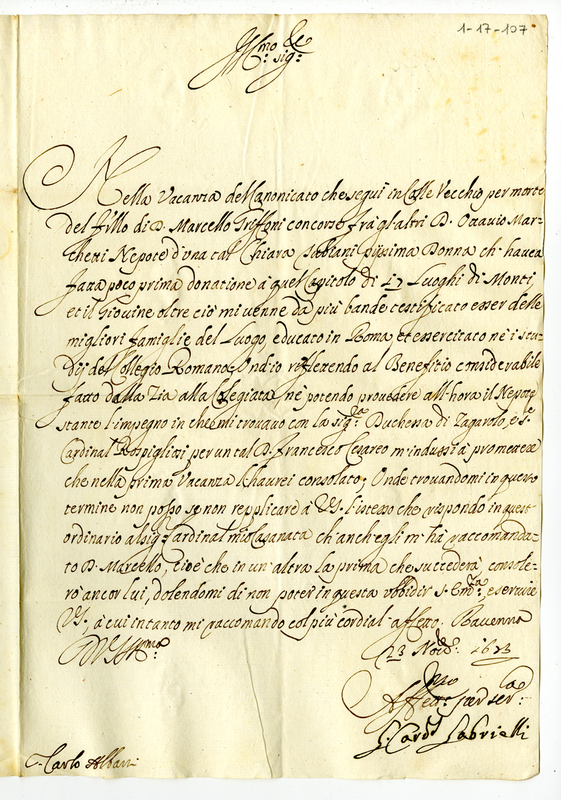 1-17-107
Ill.mo Sig.
Nella Vacanza del Canonicato che seguì in Colle Vecchio per morte
del fr̃llo di D. Marcello Griffoni concorse frà gl'altri D. Ottavio Mar-
chetti Nepote d'una tal Chiara piissima Donna ch'haveva
fatta poco prima donatione à quel Capitolo di 17 Luoghi di Monti,
et il Giovine oltre ciò mi venne da più bande testificato esser delle
migliori famiglie del Luogo, educato in Roma, et essercitato ne i stu-
dij del Collegio Romano; Ond'io riflettendo al Beneficio considerabile
fatto dalla Zia alla Colegiata nè potendo provedere all'hora il Nepote
stante l'impegno in che mi trovavo con la Sig.ra Duchessa di Zagarolo, e S.r
Cardinal Rospigliosi per un tal D. Francesco Cesareo m'indussi à promettere
che nella prima Vacanza l'haurei consolato; Onde trovandomi in questo
termine non posso se non replicare à VS. l'istesso che rispondo in quest'
ordinario al Sig. Cardinal mio Casanata ch'anch'egli m'hà raccomanda-
to D. Marcello, cioè che in un'altra la prima che succederà, console-
rò ancor lui, dolendomi di non poter in questa obbidir S. Em.za, e servire
VS., à cui intanto mi raccomando col più cordial affetto. Ravenna
D VS Ill.ma
23 Nov.e 1683
Aff.mo per ser.la
G. Card. Gabrielli
S. Carlo Albani